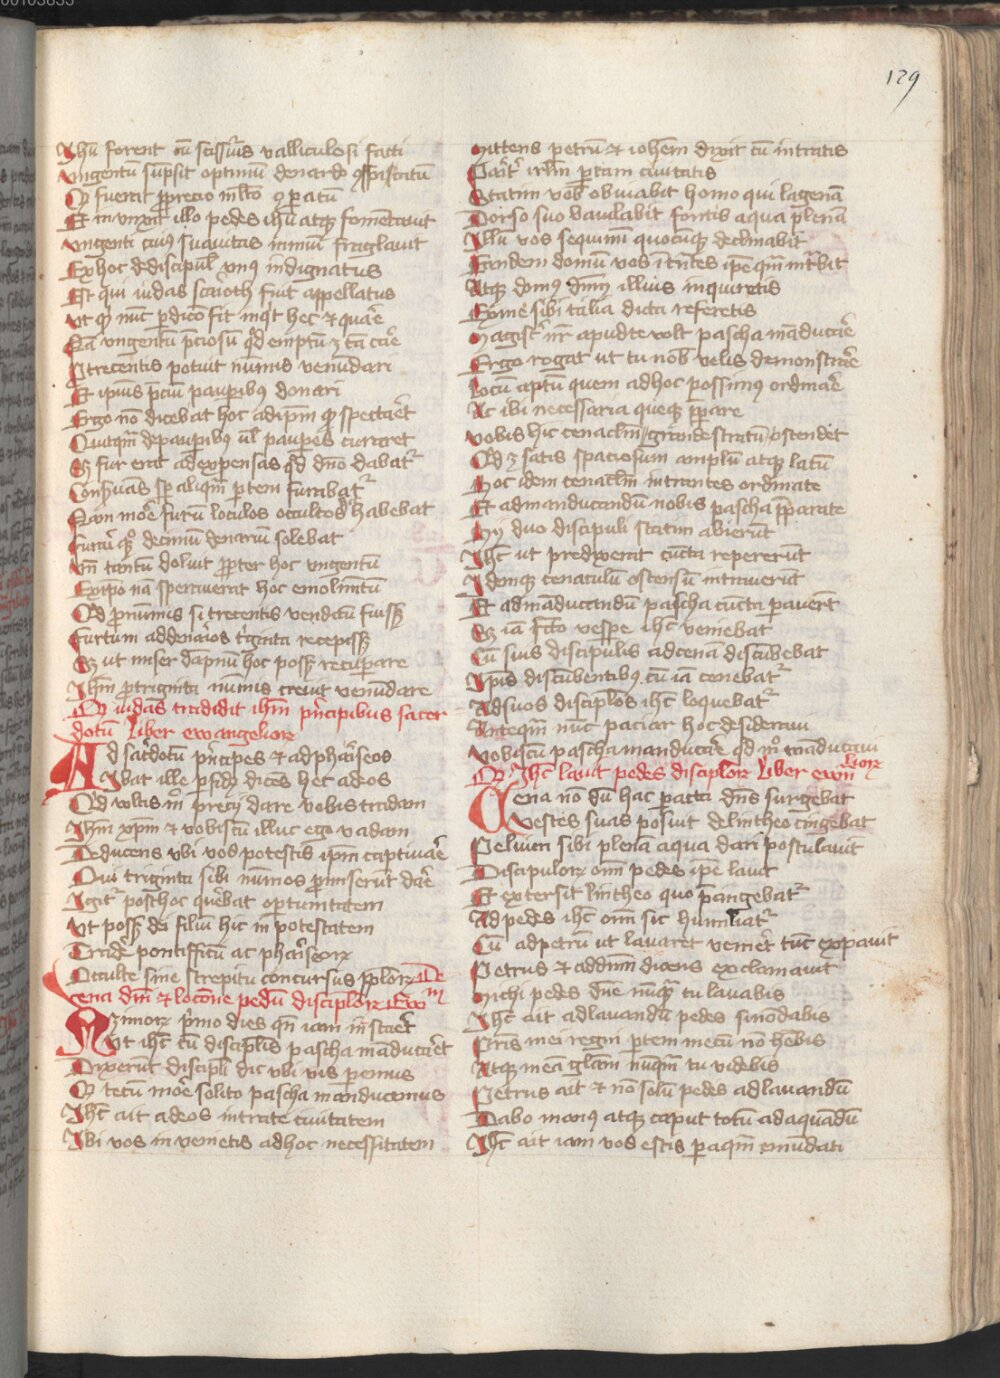 129
Ihu forent cu scissuris valliculosi facti
Ungentu supsit optimu denardo 9spiscatu
Q fuerat precio mlto 9paratu
Et inunxit illo pedes ihu atq fomentavit
Ungenti cuiq suavitas nimiu fraglavit
Ex hoc de discipul unq indignatus
Et qui iudas scarioth fuit appellatus
Ut q nuc pdico fit inqt hec et quare
Na ungentu pciosu qd emptu z ta care
Trecentis potuit numis venudari
Et ipius pciu paupibus donari
Ergo no dicebat hoc ad ipm q spectaret
Quicqm de paupibq ul paupes curaret
Sz fur erat ad expensas qd dno dabatr
Conservas sp aliqm ptem furabatr
Nam more furu loculos occultos habebat
Furari qq decimu denarum solebat
Un tantu doluit propter hoc ungentu
Ex ipo na speraverat hoc emolimtu
Qd pnumis si trecentis vendatu fuiss
Furtum ad denarios triginta recepiss
Sz ut miser dapnu hoc poss recuperare
Ihm ptriginta numis crevit venudare
Q iudas tradidit ihm principibus sacer
dotu Liber ewangelior
Ad sacerdotu principes et ad phariseos
Ibat ille perfidq dices hec ad eos
Qd vultis m precij dare vobis tradam
Ihm xpm et vobiscu illuc ego vadam
Deducens ubi vos potestis ipm captivare
Qui triginta sibi numos pmiserut dare
Igitr post hoc querebat oportunitatem
Ut poss dei filiu hic in potestatem
Tradere pontificu ac phariseor
Occulte sine strepitu concursus plor De
cena dni et locone pedu disciplor Ewm
Azimor primo dies qn iam instaret
Ut ihc cu disciplis pascha manducaret
Dixerut discipli dic ubi vis pemus
Q tecu more solito pascha manducemus
Ihc ait ad eos intrate civitatem
Ibi vos invenietis ad hoc necessitatem
Mittens petru et iohem dixit cu intratis
Statim vob obviabit homo qui lagena
Dorso suo baiulabit fontis aqua plena
Illu vos sequimi quocuq declinabit
Eandem domu vos itntes ipe qm intbit
Atq domq dnm illius inquiretis
Ex me sibi talia dicta referetis
Magistr nr apud te volt pascha maducare
Ergo rogat ut tu nob velis demonstrare
Locu aptu quem ad hoc possimq ordinare
Ac ibi necessaria queq pparare
Vobis hic cenaclm grande stratu ostendet
Qd z satis spaciosum amplu atq latu
Hoc idem cenaclm intrantes ordinate
Et ad manducandu nobis pascha pparate
Hij duo discipuli statim abierut
Ihc ut predixerat cucta repererut
Idemq cenaculu ostensu intraverut
Et ad maducandu pascha cucta paverut
Sz ia fcto vespe ihc veniebat
Cu suis discipulis ad cena discubebat
Ipis discubentibq cu ia cenebatr
Ad suos disciplos ihc loquebatr
Anteqm nuc paciar hoc desideravi
Vobiscu pascha manducare qd m maducavi
Q Ihc lavit pedes disciplor Liber ewn
lior
Cena no du hac pacta dns surgebat
Vestes suas posuit de lintheo cingebat
Pelvim sibi plena aqua dari postulavit
Discipulor om pedes ipe lavit
Et extersit lintheo quo pcingebatr
Ad pedes ihc om sic humiliatr
Cu ad petru ut lavaret veniret tuc expavit
Petrus et ad dnm dicens exclamavit
Michi pedes dne nuqm tu lavabis
Ihc ait ad lavandu pedes si no dabis
Pris mei regni ptem mecu no hebis
Atq mea gliam nuqm tu videbis
Petrus ait et no solu pedes ad lavandu
Dabo manq atq caput totu ad aquadu
Ihc ait iam vos estis p aqm emudati